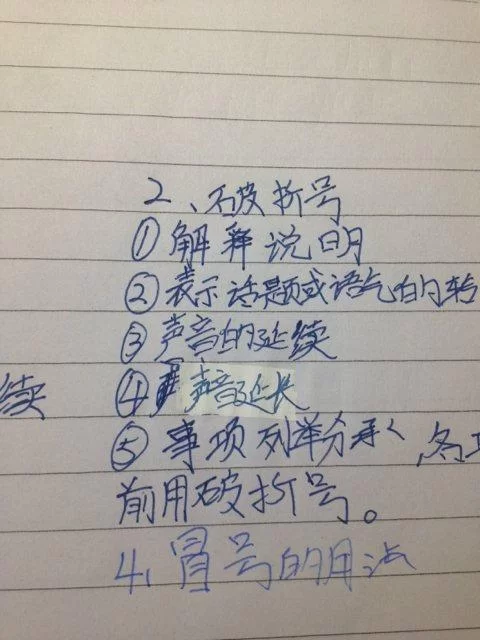 2、破折号
①解释说明
②表示话题或语气的转
③声音的延续
续 ④声音延长
⑤事项列举分承,各
前用破折号。
4、冒号的用法